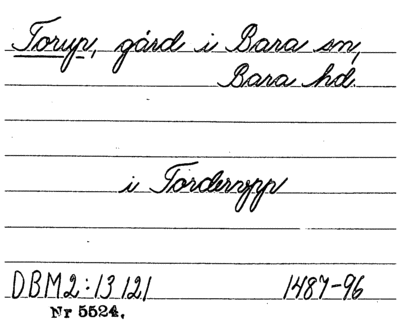 Torup, gård i Bara sn,
Bara hd.
i Torderupp
DBM2:13 121 1487-96
Nr 5524,